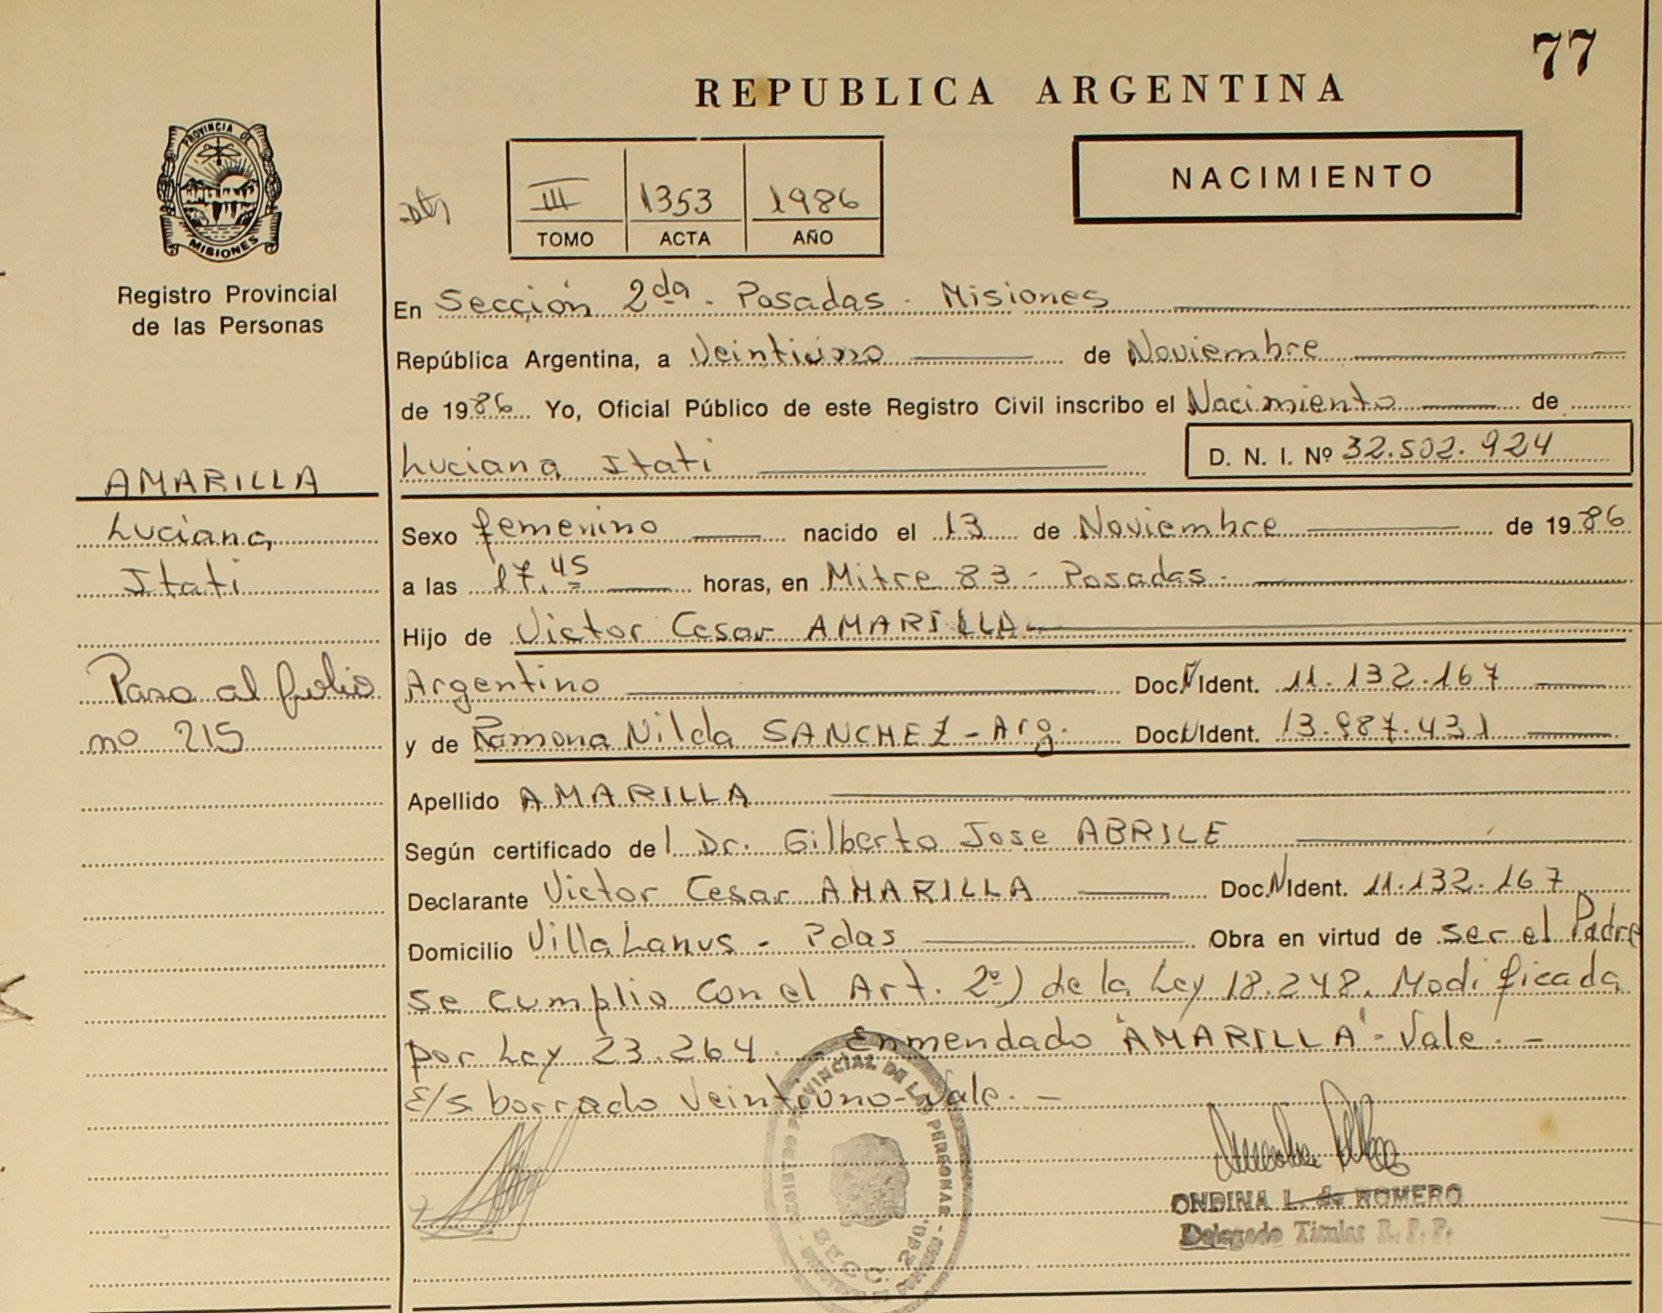 77
REPUBLICA ARGENTINA
PROVINCIA DE
MISIONES
Registro Provincial
de las Personas
III 1353 1986
TOMO ACTA AÑO
NACIMIENTO
En Sección 2da. Posadas - Misiones
República Argentina, a Veintiuno de Noviembre
de 1986 Yo, Oficial Público de este Registro Civil inscribo el Nacimiento de
Luciana Itati D. N. I. Nº 32.502.924
AMARILLA
Luciana
Itati
Paso al folio
no 215
Sexo femenino nacido el 13 de Noviembre de 1986
a las 17,45 horas, en Mitre 83 - Posadas.
Hijo de Victor Cesar AMARILLA
Argentino Doc. N Ident. 11.132.167
y de Ramona Nilda SANCHEZ - Arg. Doc. N Ident. 13.987.431
Apellido AMARILLA
Según certificado del Dr. Gilberto Jose ABRILE
Declarante Victor Cesar AMARILLA Doc. N Ident. 11.132.167
Domicilio Villa Lanus - Pdas Obra en virtud de ser el Padre
Se cumplio con el Art. 2º) de la Ley 18.248. Modificada
por Ley 23.264. - Enmendado "AMARILLA" - Vale. -
E/s borrado Veintiuno - Vale. -
REGISTRO PROVINCIAL DE LAS PERSONAS
SECC. 2da.
ONDINA L. de ROMERO
Delegado Titular R. P. P.